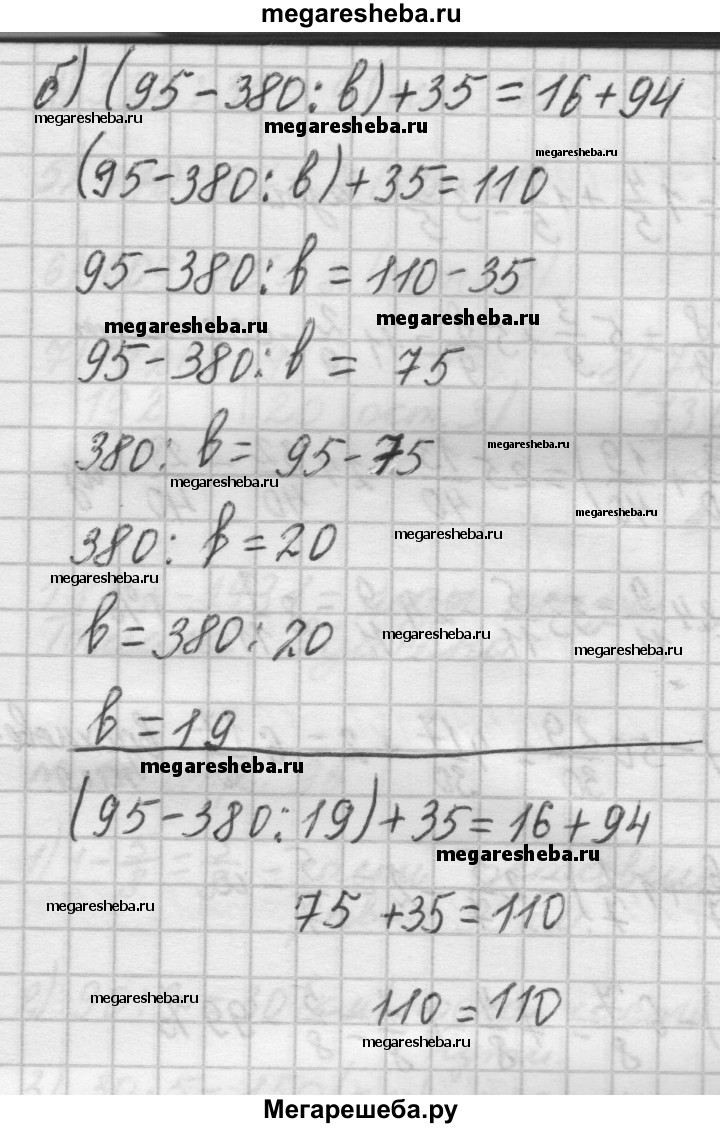 megaresheba.ru
б) (95-380:b)+35=16+94
megaresheba.ru
megaresheba.ru
megaresheba.ru
(95-380:b)+35=110
95-380:b=110-35
megaresheba.ru
megaresheba.ru
95-380:b= 75
380:b= 95-75
megaresheba.ru
megaresheba.ru
megaresheba.ru
380:b=20
megaresheba.ru
megaresheba.ru
b=380:20
megaresheba.ru
megaresheba.ru
b=19
megaresheba.ru
(95-380:19)+35=16+94
megaresheba.ru
megaresheba.ru
75 +35=110
megaresheba.ru
110=110
megaresheba.ru
Мегарешеба.ру